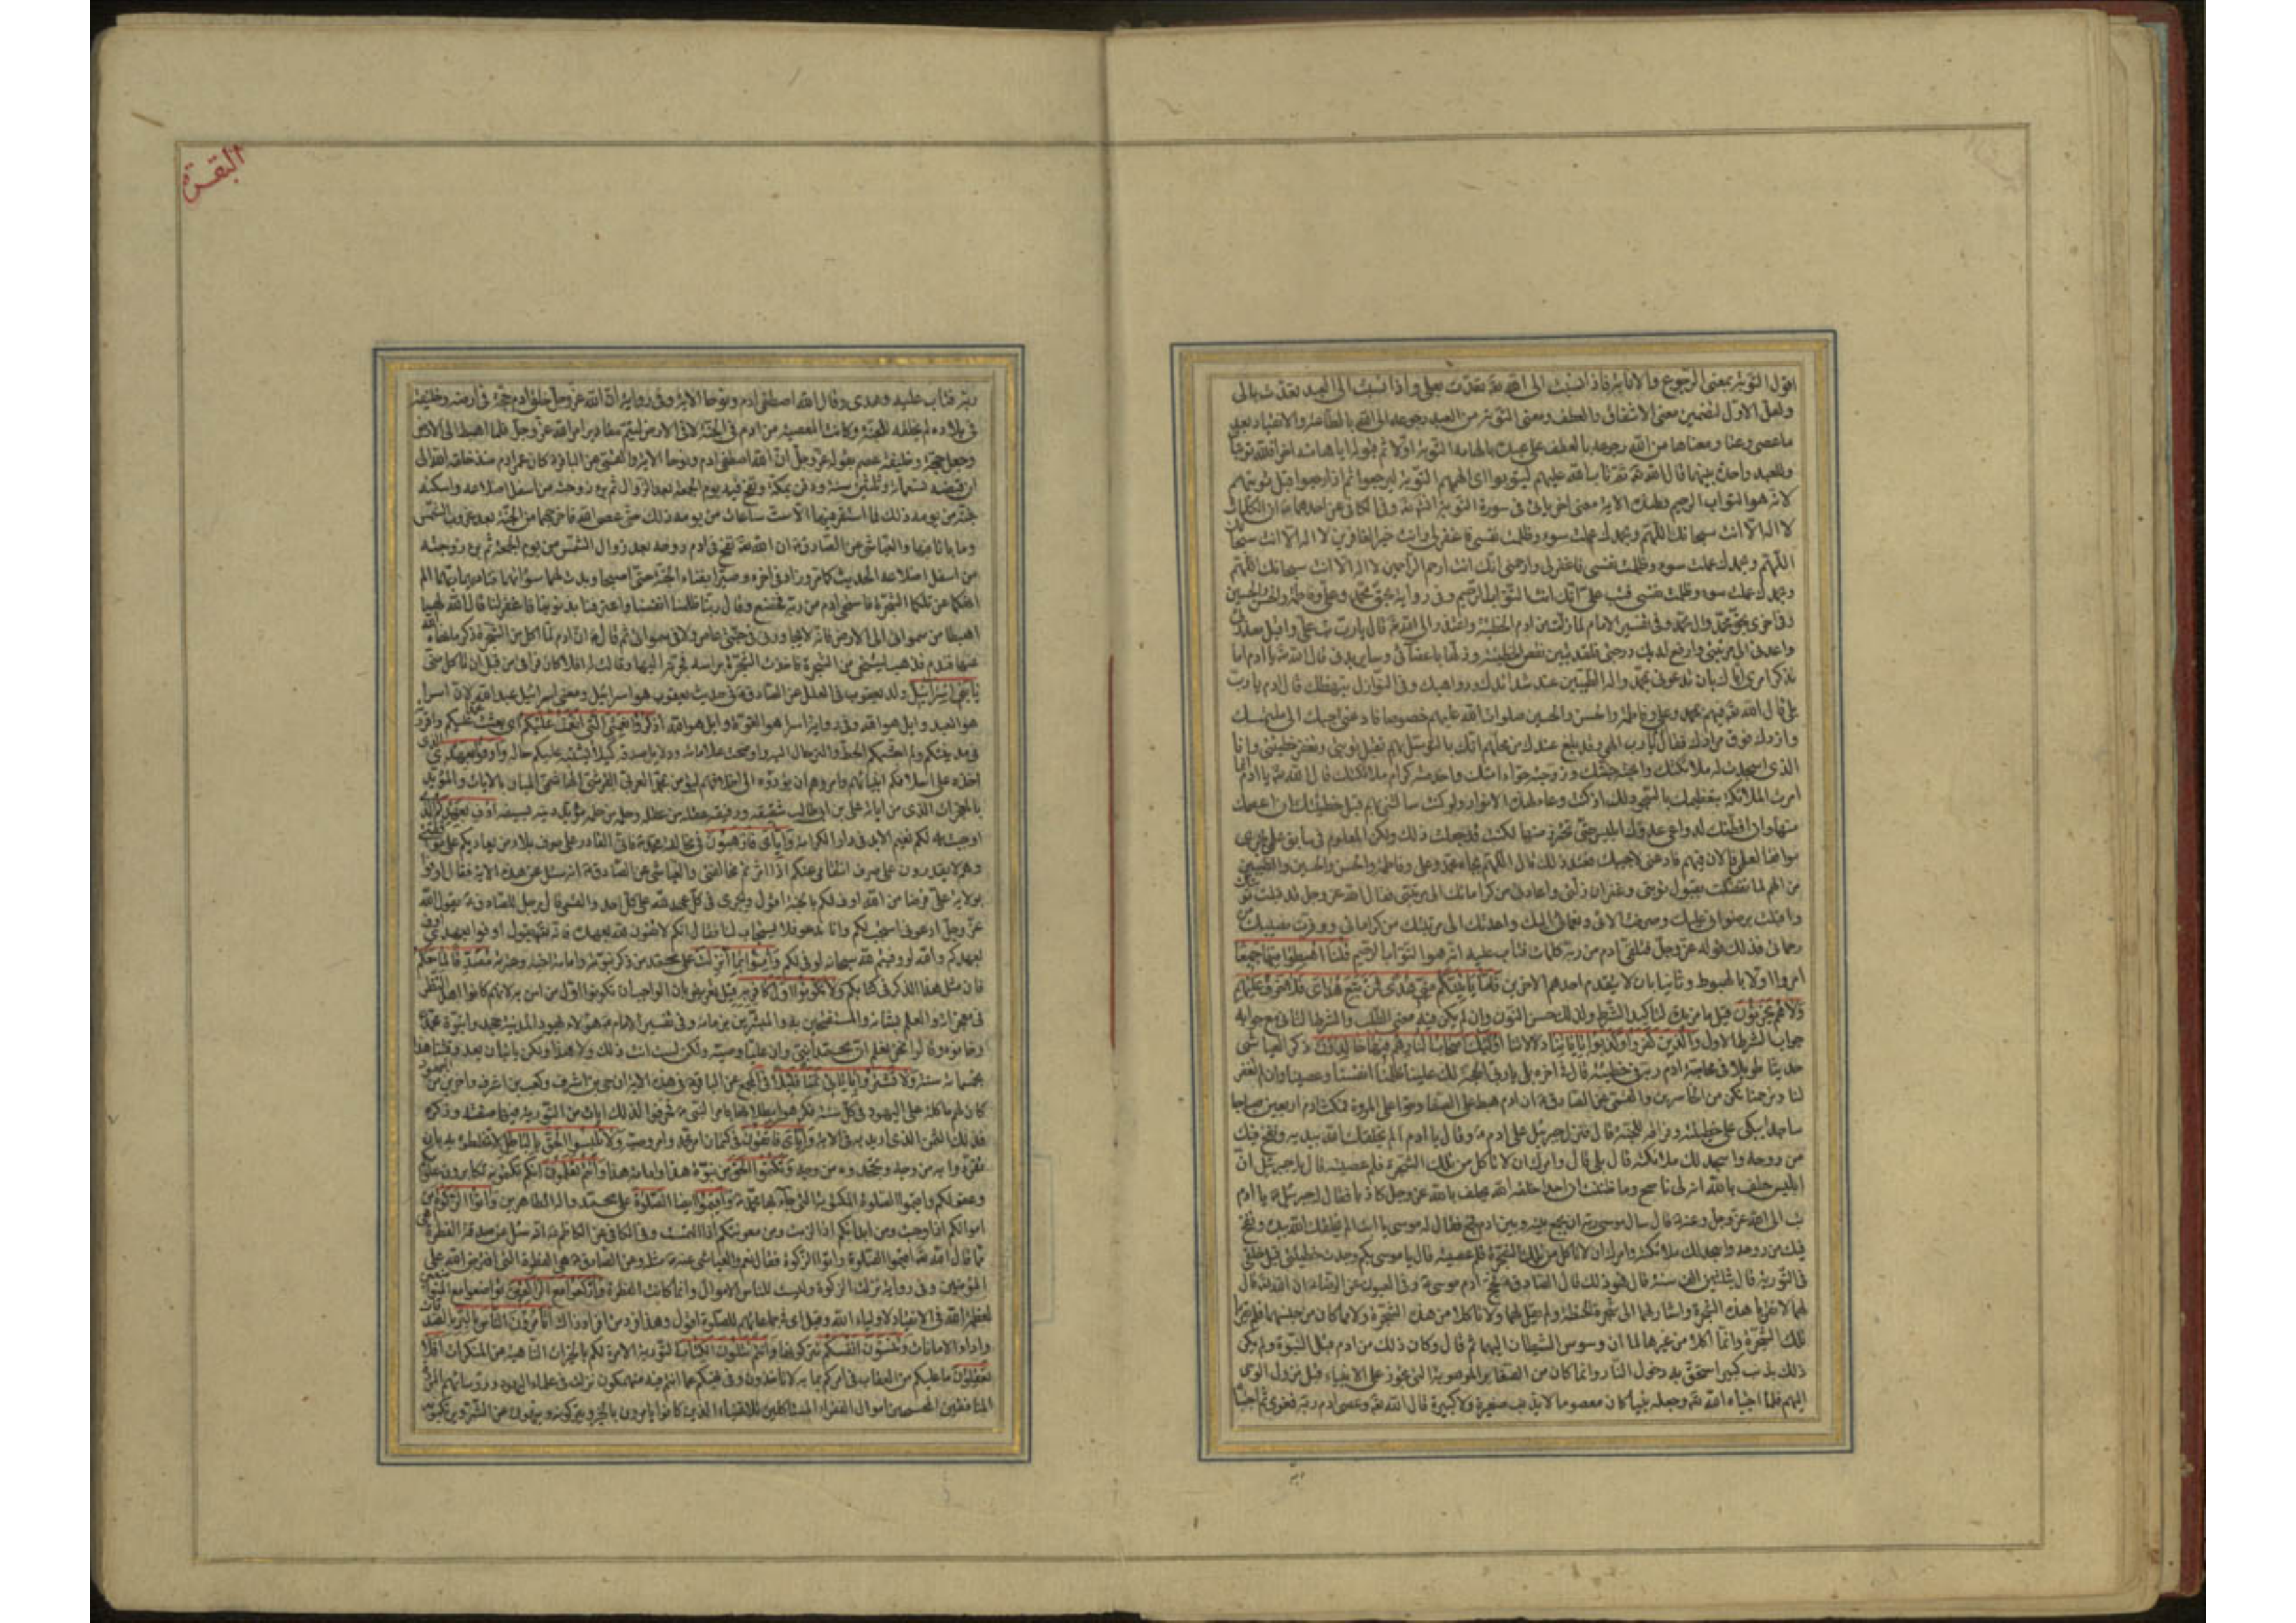 اقول التوبة بمعنى الرجوع والانابة فاذا نسبت الى الله تعدت بعلى واذا نسبت الى العبد تعدت بالى
ولعل الاول لتضمين معنى الاشفاق والعطف ومعنى التوبة من العبد رجوعه الى الله بالطاعة والانقياد بعد
ما عصى وعتا ومعناها من الله رجوعه بالعطف على عبده بالهامه التوبة اولا ثم قبوله اياها منه اخرا فلله توبتان
وللعبد واحدة بينهما قال الله تعالى ثم تاب الله عليهم ليتوبوا اى الهمهم التوبة ليرجعوا ثم اذا رجعوا قبل توبتهم
لانه هو التواب الرحيم
لا اله الا انت سبحانك اللهم وبحمدك عملت سوء وظلمت نفسى فاغفر لى وانت خير الغافرين لا اله الا انت سبحانك
اللهم وبحمدك عملت سوء وظلمت نفسى فاغفر لى وارحمنى انك انت ارحم الراحمين لا اله الا انت سبحانك اللهم
وبحمدك عملت سوء وظلمت نفسى فتب على انك انت التواب الرحيم وفى رواية بحق محمد وعلى وفاطمة والحسن والحسين
وفى اخرى بحق محمد وال محمد وفى تفسير الامام لما زلت من ادم الخطيئة واعتذر الى الله قال يا رب تب على واقبل معذرتى
واعدنى الى مرتبتى وارفع لديك درجتى فلقد تبين نقص الخطيئة وذلها باعضائى وسائر بدنى قال الله يا ادم اما
تذكر امرى اياك بان تدعونى بمحمد واله الطيبين عند شدائدك ودواهيك وفى النوازل تبهظك قال ادم يا رب
بلى قال الله فبهم بمحمد وعلى وفاطمة والحسن والحسين صلوات الله عليهم خصوصا فادعنى اجبك الى ملتمسك
وازدك فوق مرادك فقال يا رب الهى وقد بلغ عندك من محلهم انك بالتوسل بهم تقبل توبتى وتغفر خطيئتى وانا
الذى اسجدت له ملائكتك وابحته جنتك وزوجته حواء امتك واخدمته كرام ملائكتك قال الله يا ادم انما
امرت الملائكة بتعظيمك بالسجود لك اذ كنت وعاء لهذه الانوار ولو كنت سالتنى بهم قبل خطيئتك ان اعصمك
منها وان افطنك لدواعى عدوك ابليس حتى تحترز منها لكنت قد جعلت ذلك ولكن المعلوم فى سابق علمى يجرى
موافقا لعلمى فالان فبهم فادعنى لاجيبك فعند ذلك قال اللهم بجاه محمد وعلى وفاطمة والحسن والحسين والطيبين
من الهم لما تفضلت بقبول توبتى وغفران زلتى واعادتى من كراماتك الى مرتبتى فقال الله عز وجل قد قبلت توبتك
واقبلت برضوانى عليك وصرفت الائى ونعمائى اليك واعدتك الى مرتبتك من كراماتى ووفرت نصيبك من
رحماتى فذلك قوله عز وجل فتلقى ادم من ربه كلمات فتاب عليه انه هو التواب الرحيم قلنا اهبطوا منها جميعا
امروا اولا بالهبوط وثانيا بان لا يتقدم احدهم الاخرين فاما ياتينكم منى هدى فمن تبع هداى فلا خوف عليهم
ولا هم يحزنون
جواب الشرط الاول والذين كفروا وكذبوا باياتنا دلالاتنا اولئك اصحاب النار هم فيها خالدون ذكر العياشى
حديثا طويلا فى محاسبة ادم ربه
لنا وترحمنا نكن من الخاسرين والقمى عن الصادق ان ادم هبط على الصفا وحوا على المروة فمكث ادم اربعين صباحا
ساجدا يبكى على خطيئته وفراقه للجنة قال فنزل جبرئيل على ادم وقال يا ادم الم يخلقك الله بيديه ونفخ فيك
من روحه واسجد لك ملائكته قال بلى قال وامرك ان لا تاكل من تلك الشجرة فلم عصيته قال يا جبرئيل ان
ابليس حلف بالله انه لى ناصح وما ظننت ان احدا خلقه الله يحلف بالله عز وجل كاذبا فقال له جبرئيل يا ادم
تب الى الله عز وجل وعنه قال سال موسى ربه ان يجمع بينه وبين ادم فجمع فقال له موسى يا ابت الم يخلقك الله بيده ونفخ
فيك من روحه واسجد لك ملائكته وامرك ان لا تاكل من تلك الشجرة فلم عصيته قال يا موسى بكم وجدت خطيئتى قبل خلقى
فى التورية قال بثلثين الف سنة قال فهو ذلك قال الصادق فحج ادم موسى وفى العيون عن الرضا ان الله قال
لهما لا تقربا هذه الشجرة واشار لهما الى شجرة الحنطة ولم يقل لهما ولا تاكلا من هذه الشجرة ولا مما كان من جنسها فلم يقربا
تلك الشجرة وانما اكلا من غيرها لما ان وسوس الشيطان اليهما ثم قال وكان ذلك من ادم قبل النبوة ولم يكن
ذلك بذنب كبير استحق به دخول النار وانما كان من الصغاير الموهوبة التى تجوز على الانبياء قبل نزول الوحى
اليهم فلما اجتباه الله وجعله نبيا كان معصوما لا يذنب صغيرة ولا كبيرة قال الله وعصى ادم ربه فغوى ثم اجتباه
ربه
البقرة
ربه فتاب عليه وهدى وقال ان الله اصطفى ادم ونوحا الاية وفى رواية ان الله عز وجل خلق ادم حجة فى ارضه وخليفة
فى بلاده لم يخلقه للجنة وكانت المعصية من ادم فى الجنة لا فى الارض ليتم مقادير امر الله عز وجل فلما اهبط الى الارض
وجعل حجة وخليفة عصم بقوله عز وجل ان الله اصطفى ادم ونوحا الاية والقمى عن الباقر كان عمر ادم منذ خلقه الله الى
ان قبضه تسعماة وثلثين سنة ودفن بمكة ونفخ فيه يوم الجمعة بعد الزوال ثم برء زوجته من اسفل اضلاعه واسكنه
جنته من يومه ذلك فما استقر فيها الا ست ساعات من يومه ذلك حتى عصى الله فاخرجهما من الجنة بعد غروب الشمس
وما باتا فيها والعياشى عن الصادق ان الله نفخ فى ادم روحه بعد زوال الشمس من يوم الجمعة ثم برء زوجته
من اسفل اضلاعه الحديث كما مر وزاد فى اخره وصيرا بفناء الجنة حتى اصبحا وبدت لهما سواتهما فناداهما ربهما الم
انهكما عن تلكما الشجرة فاستحى ادم من ربه فخضع وقال ربنا ظلمنا انفسنا واعترفنا بذنوبنا فاغفر لنا قال الله لهما
اهبطا من سمواتى الى الارض فانه لا يجاورنى فى جنتى عاص ولا فى سمواتى ثم قال ان ادم لما اكل من الشجرة ذكر ما نهاه الله
عنها فندم فذهب ليتنحى من الشجرة فاخذت الشجرة براسه فجرته اليها وقالت له افلا كان فرارى من قبل ان تاكل منى
يا بنى اسرائيل ولد يعقوب فى العلل عن الصادق فى حديث يعقوب هو اسرائيل ومعنى اسرائيل عبد الله لان اسرا
هو العبد وايل هو الله وفى رواية اسرا هو القوة وايل هو الله اذكروا نعمتى التى انعمت عليكم
واوفوا بعهدى الذى
اخذه على اسلافكم انبيائهم وامروهم ان يؤدوه الى اخلافهم ليؤمنن بمحمد العربى القرشى الهاشمى المبان بالايات والمؤيد
بالمعجزات الذى من اياته على بن ابى طالب شقيقه ورفيقه عقله من عقله وعلمه من علمه مؤيد دينه بسيفه اوف بعهدكم الذى
اوجبت به لكم نعيم الابد فى دار الكرامة واياى فارهبون فى مخالفة محمد فانى القادر على صرف بلاء من يعاديكم على موافقتى
وهم لا يقدرون على صرف انتقامى عنكم اذا اثرتم مخالفتى والعياشى عن الصادق انه سئل عن هذه الاية فقال اوفوا
بولاية على فرضا من الله اوف لكم بالجنة اقول ويجرى فى كل عهد لله على كل احد والقمى قال رجل للصادق يقول الله
عز وجل ادعونى استجب لكم وانا ندعو فلا يستجاب لنا فقال انكم لا تفون لله بعهده فانه يقول اوفوا بعهدى اوف
بعهدكم والله لو وفيتم لله سبحانه لوفى لكم وامنوا بما انزلت على محمد من ذكر نبوته وامامة اخيه وعترته مصدقا لما معكم
فان مثل هذا الذكر فى كتابكم ولا تكونوا اول كافر به
محمد
وخانوه وقالوا نحن نعلم ان محمدا نبى وان عليا وصيه ولكن لست انت ذلك ولا هذا ولكن ياتيان بعد وقتنا هذا
بخمسماة سنة ولا تشتروا باياتى ثمنا قليلا فى المجمع عن الباقر فى هذه الاية ان حى بن اخطب وكعب بن اشرف واخرين من اليهود
كان لهم ماكلة على اليهود فى كل سنة فكرهوا بطلانها بامر النبى فحرفوا لذلك ايات من التورية فيها صفته وذكره
فذلك الثمن الذى اريد به فى الاية واياى فاتقون فى كتمان امر محمد وامر وصيه ولا تلبسوا الحق بالباطل لا تخلطوه به بان
تقروا به من وجه وتجحدوه من وجه وتكتموا الحق من نبوة هذا وامامة هذا وانتم تعلمون انكم تكتمونه تكابرون علومكم
وعقولكم واقيموا الصلوة المكتوبة التى جاء بها محمد واقيموا ايضا الصلوة على محمد واله الطاهرين واتوا الزكوة من
اموالكم اذا وجبت ومن ابدانكم اذا لزمت ومن معونتكم اذا التمست وفى الكافى عن الكاظم انه سئل عن صدقة الفطرة اهى
مما قال الله اقيموا الصلوة واتوا الزكوة فقال نعم والعياشى عنه مثله وعن الصادق هى الفطرة التى افترض الله على
المؤمنين وفى رواية نزلت الزكوة وليست للناس الاموال وانما كانت الفطرة واركعوا مع الراكعين تواضعوا مع المتواضعين
لعظمة الله فى الانقياد لاولياء الله وقيل اى فى جماعاتهم للصلوة اقول وهذا فرد من افراد ذاك اتامرون الناس بالبر بالصدقات
واداء الامانات وتنسون انفسكم تتركونها وانتم تتلون الكتاب التورية الامرة لكم بالخيرات الناهية عن المنكرات افلا
تعقلون ما عليكم من العقاب فى امركم بما به لا تاخذون وفى نهيكم عما انتم فيه منهمكون نزلت فى علماء اليهود ورؤسائهم المردة
المنافقين المحتجبين اموال الفقراء المستاكلين للاغنياء الذين كانوا يامرون بالخير ويتركونه وينهون عن الشر ويرتكبونه